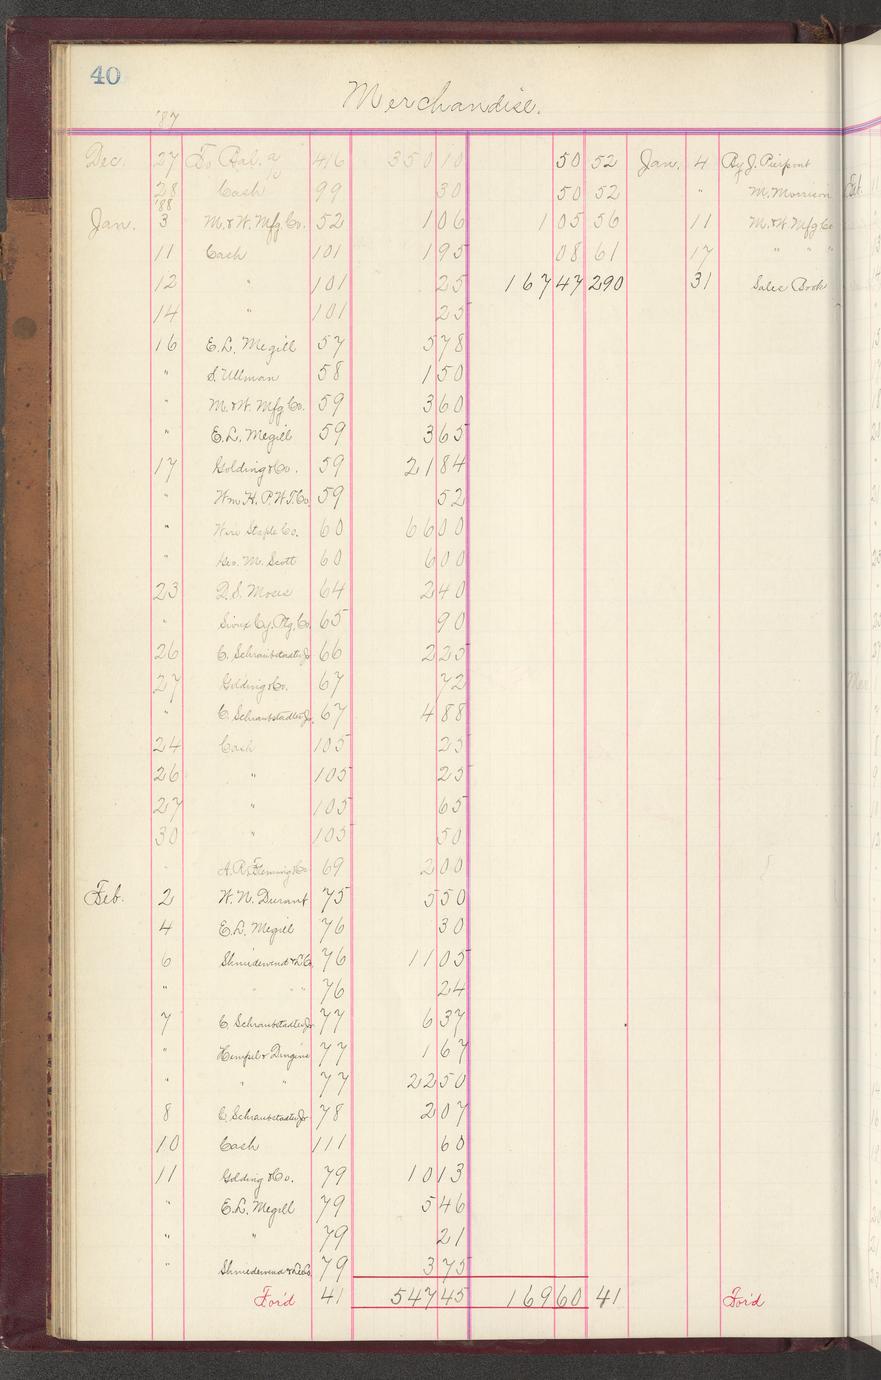 40
Merchandise.
'87
Dec. 27 To Bal. 416 350 10 50 52 Jan. 4 By J. Pierpont
28 Cash 99 30 50 52 " M. Morrison
'88
Jan. 3 M. & W. Mfg. Co. 52 1 06 1 05 56 11 M. & W. Mfg Co
11 Cash 101 1 95 08 61 17 " " "
12 " 101 25 167 47 290 31 Sales Book
14 " 101 25
16 E.L. Megill 57 5 78
" S. Ullman 58 1 50
" M. & W. Mfg Co. 59 3 60
" E.L. Megill 59 3 65
17 Golding & Co. 59 21 84
" Wm H. P. W. T. Co. 59 52
" Wire Staple Co. 60 66 00
" Geo. M. Scott 60 6 00
23 Moses 64 2 40
" Sioux Cy. Ptg. Co. 65 90
26 C. Schraubstadter Jr 66 2 25
27 Golding & Co. 67 72
" C. Schraubstadter Jr. 67 4 88
24 Cash 105 25
26 " 105 25
27 " 105 65
30 " 105 50
" A. R. Fleming & Co 69 2 00
Feb. 2 W. N. Durant 75 5 50
4 E.L. Megill 76 30
6 Shniedewend & L. Co. 76 11 05
" " " " 76 24
7 C. Schraubstadter Jr. 77 6 37
" Hempel & Dingens 77 1 67
" " " 77 22 50
8 C. Schraubstadter Jr 78 2 07
10 Cash 111 60
11 Golding & Co. 79 10 13
" E.L. Megill 79 5 46
" " 79 21
" Shniedewend & Lee Co. 79 3 75
For'd 41 547 45 169 60 41 For'd